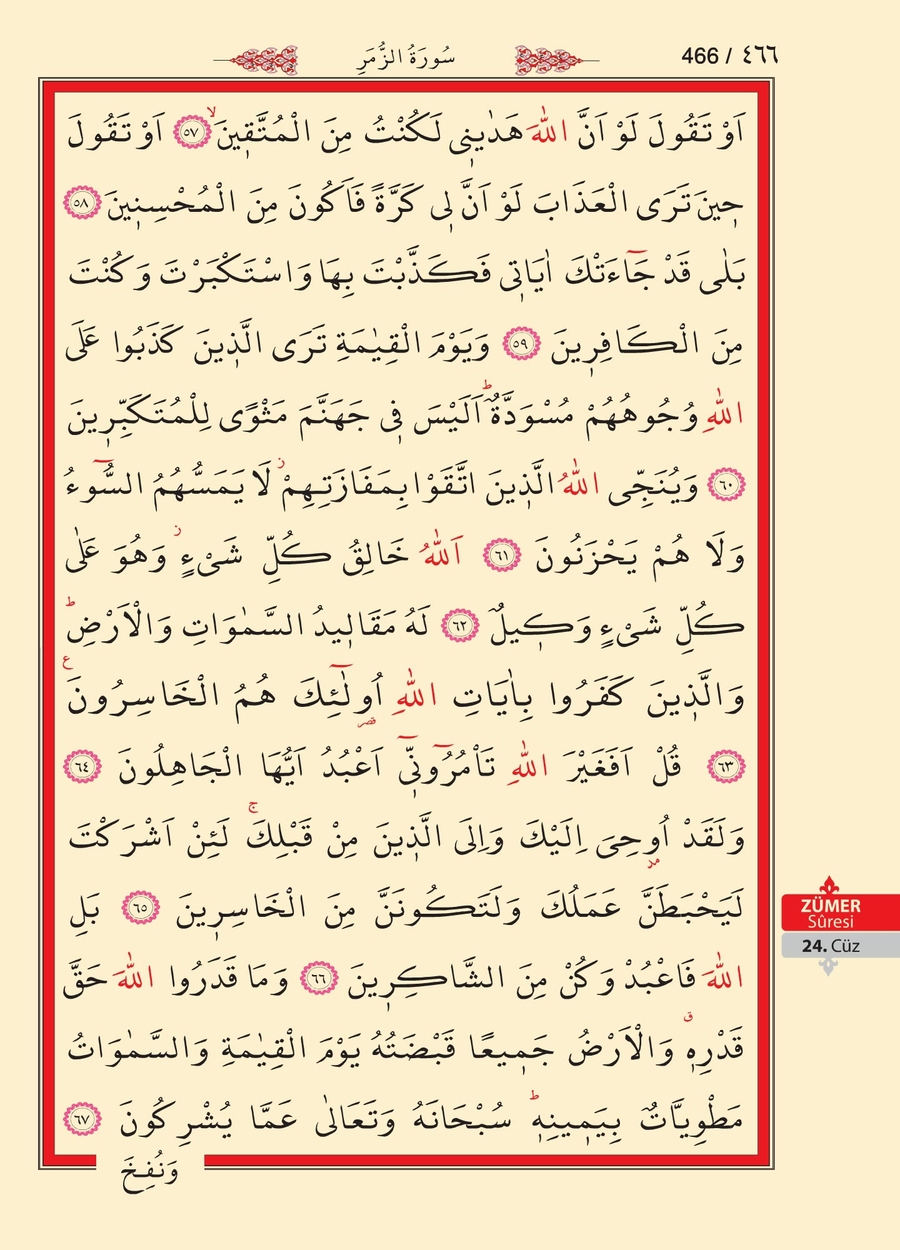 سُورَةُ الزُّمَرِ
466 / ٤٦٦
اَوْ تَقُولَ لَوْ اَنَّ اللّٰهَ هَدٰينٖي لَكُنْتُ مِنَ الْمُتَّقٖينَۙ ٥٧ اَوْ تَقُولَ
حٖينَ تَرَى الْعَذَابَ لَوْ اَنَّ لٖي كَرَّةً فَاَكُونَ مِنَ الْمُحْسِنٖينَ ٥٨
بَلٰى قَدْ جَٓاءَتْكَ اٰيَاتٖي فَكَذَّبْتَ بِهَا وَاسْتَكْبَرْتَ وَكُنْتَ
مِنَ الْكَافِرٖينَ ٥٩ وَيَوْمَ الْقِيٰمَةِ تَرَى الَّذٖينَ كَذَبُوا عَلَى
اللّٰهِ وُجُوهُهُمْ مُسْوَدَّةٌؕ اَلَيْسَ فٖي جَهَنَّمَ مَثْوًى لِلْمُتَكَبِّرٖينَ
٦٠ وَيُنَجِّى اللّٰهُ الَّذٖينَ اتَّقَوْا بِمَفَازَتِهِمْؗ لَا يَمَسُّهُمُ السُّٓوءُ
وَلَا هُمْ يَحْزَنُونَ ٦١ اَللّٰهُ خَالِقُ كُلِّ شَیْءٍؗ وَهُوَ عَلٰى
كُلِّ شَیْءٍ وَكٖيلٌ ٦٢ لَهُ مَقَالٖيدُ السَّمٰوَاتِ وَالْاَرْضِؕ
وَالَّذٖينَ كَفَرُوا بِاٰيَاتِ اللّٰهِ اُو۬لٰٓئِكَ هُمُ الْخَاسِرُونَ ع
٦٣ قُلْ اَفَغَيْرَ اللّٰهِ تَاْمُرُٓونّٖٓي اَعْبُدُ اَيُّهَا الْجَاهِلُونَ ٦٤
وَلَقَدْ اُو۫حِیَ اِلَيْكَ وَاِلَى الَّذٖينَ مِنْ قَبْلِكَۚ لَئِنْ اَشْرَكْتَ
لَيَحْبَطَنَّ عَمَلُكَ وَلَتَكُونَنَّ مِنَ الْخَاسِرٖينَ ٦٥ بَلِ
اللّٰهَ فَاعْبُدْ وَكُنْ مِنَ الشَّاكِرٖينَ ٦٦ وَمَا قَدَرُوا اللّٰهَ حَقَّ
قَدْرِهٖ ق وَالْاَرْضُ جَمٖيعًا قَبْضَتُهُ يَوْمَ الْقِيٰمَةِ وَالسَّمٰوَاتُ
مَطْوِيَّاتٌ بِيَمٖينِهٖؕ سُبْحَانَهُ وَتَعَالٰى عَمَّا يُشْرِكُونَ ٦٧
وَنُفِخَ
ZÜMER
Sûresi
24. Cüz